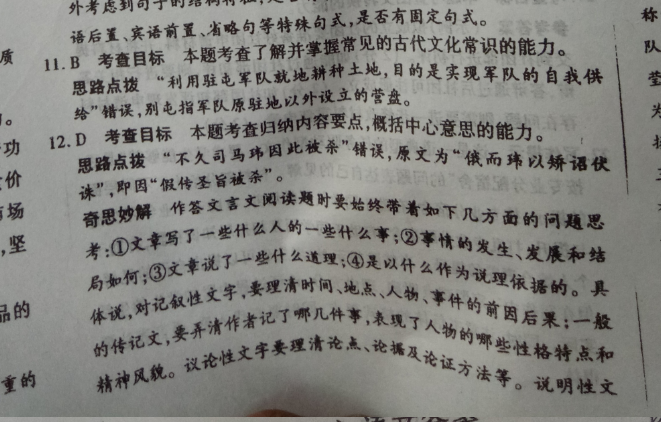 外考虑到句子的结构特征,是
语后置、宾语前置、省略句等特殊句式,是否有固定句式。
11. B 考查目标 本题考查了解并掌握常见的古代文化常识的能力。
思路点拨 “利用驻屯军队就地耕种土地,目的是实现军队的自我供
给”错误,别屯指军队原驻地以外设立的营盘。
12. D 考查目标 本题考查归纳内容要点,概括中心意思的能力。
思路点拨 “不久司马玮因此被杀”错误,原文为“俄而玮以矫诏伏
诛”,即因“假传圣旨被杀”。
奇思妙解 作答文言文阅读题时要始终带着如下几方面的问题思
考:①文章写了一些什么人的一些什么事;②事情的发生、发展和结
局如何;③文章说了一些什么道理;④是以什么作为说理依据的。具
体说,对记叙性文字,要理清时间、地点、人物、事件的前因后果;一般
的传记文,要弄清作者记了哪几件事,表现了人物的哪些性格特点和
精神风貌。议论性文字要理清论点、论据及论证方法等。说明性文
质
。
功
价
市场
,坚
品的
重的
称
队
莹
为